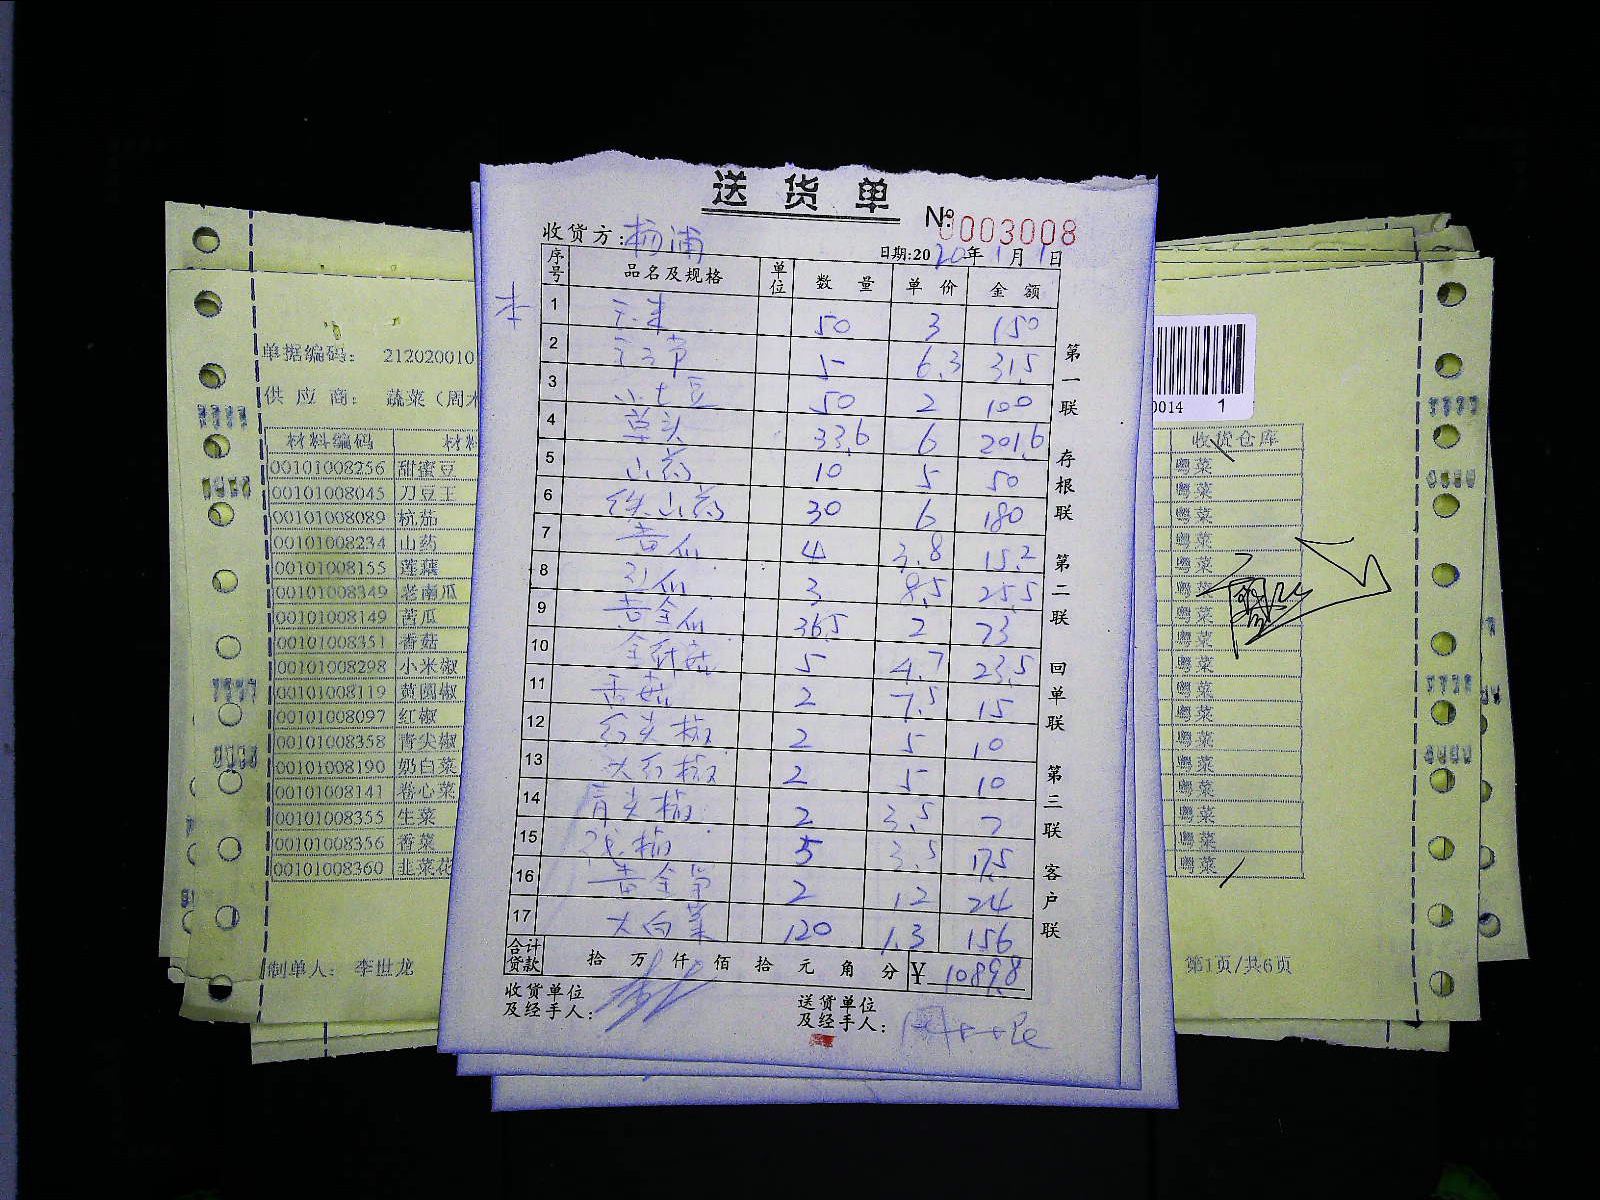 送货单
№ 0003008
收货方：杨浦 日期:2020年1月1日
序号 品名及规格 单位 数量 单价 金额
1 玉米 50 3 150
2 5 6.3 31.5
3 小土豆 50 2 100
4 草头 33.6 6 201.6
5 山药 10 5 50
6 铁山药 30 6 180
7 黄瓜 4 3.8 15.2
8 3 8.5 25.5
9 黄金瓜 36.5 2 73
10 金针菇 5 4.7 23.5
11 香菇 2 7.5 15
12 2 5 10
13 2 5 10
14 青尖椒 2 3.5 7
15 5 3.5 17.5
16 2 12 24
17 大白菜 120 1.3 156
合计货款 拾 万 仟 佰 拾 元 角 分 ¥ 1089.8
收货单位及经手人：
送货单位及经手人：
第一联 存根联 第二联 回单联 第三联 客户联
单据编码： 212020010
供应商： 蔬菜（周
材料编码 材料
00101008256 甜蜜豆
00101008045 刀豆王
00101008089 杭茄
00101008234 山药
00101008155 莲藕
00101008349 老南瓜
00101008149 苦瓜
00101008351 香菇
00101008298 小米椒
00101008119 黄圆椒
00101008097 红椒
00101008358 青尖椒
00101008190 奶白菜
00101008141 卷心菜
00101008355 生菜
00101008356 香菜
00101008360 韭菜花
制单人： 李世龙
0014 1
收货仓库
粤菜
粤菜
粤菜
粤菜
粤菜
粤菜
粤菜
粤菜
粤菜
粤菜
粤菜
粤菜
粤菜
粤菜
粤菜
粤菜
粤菜
第1页/共6页